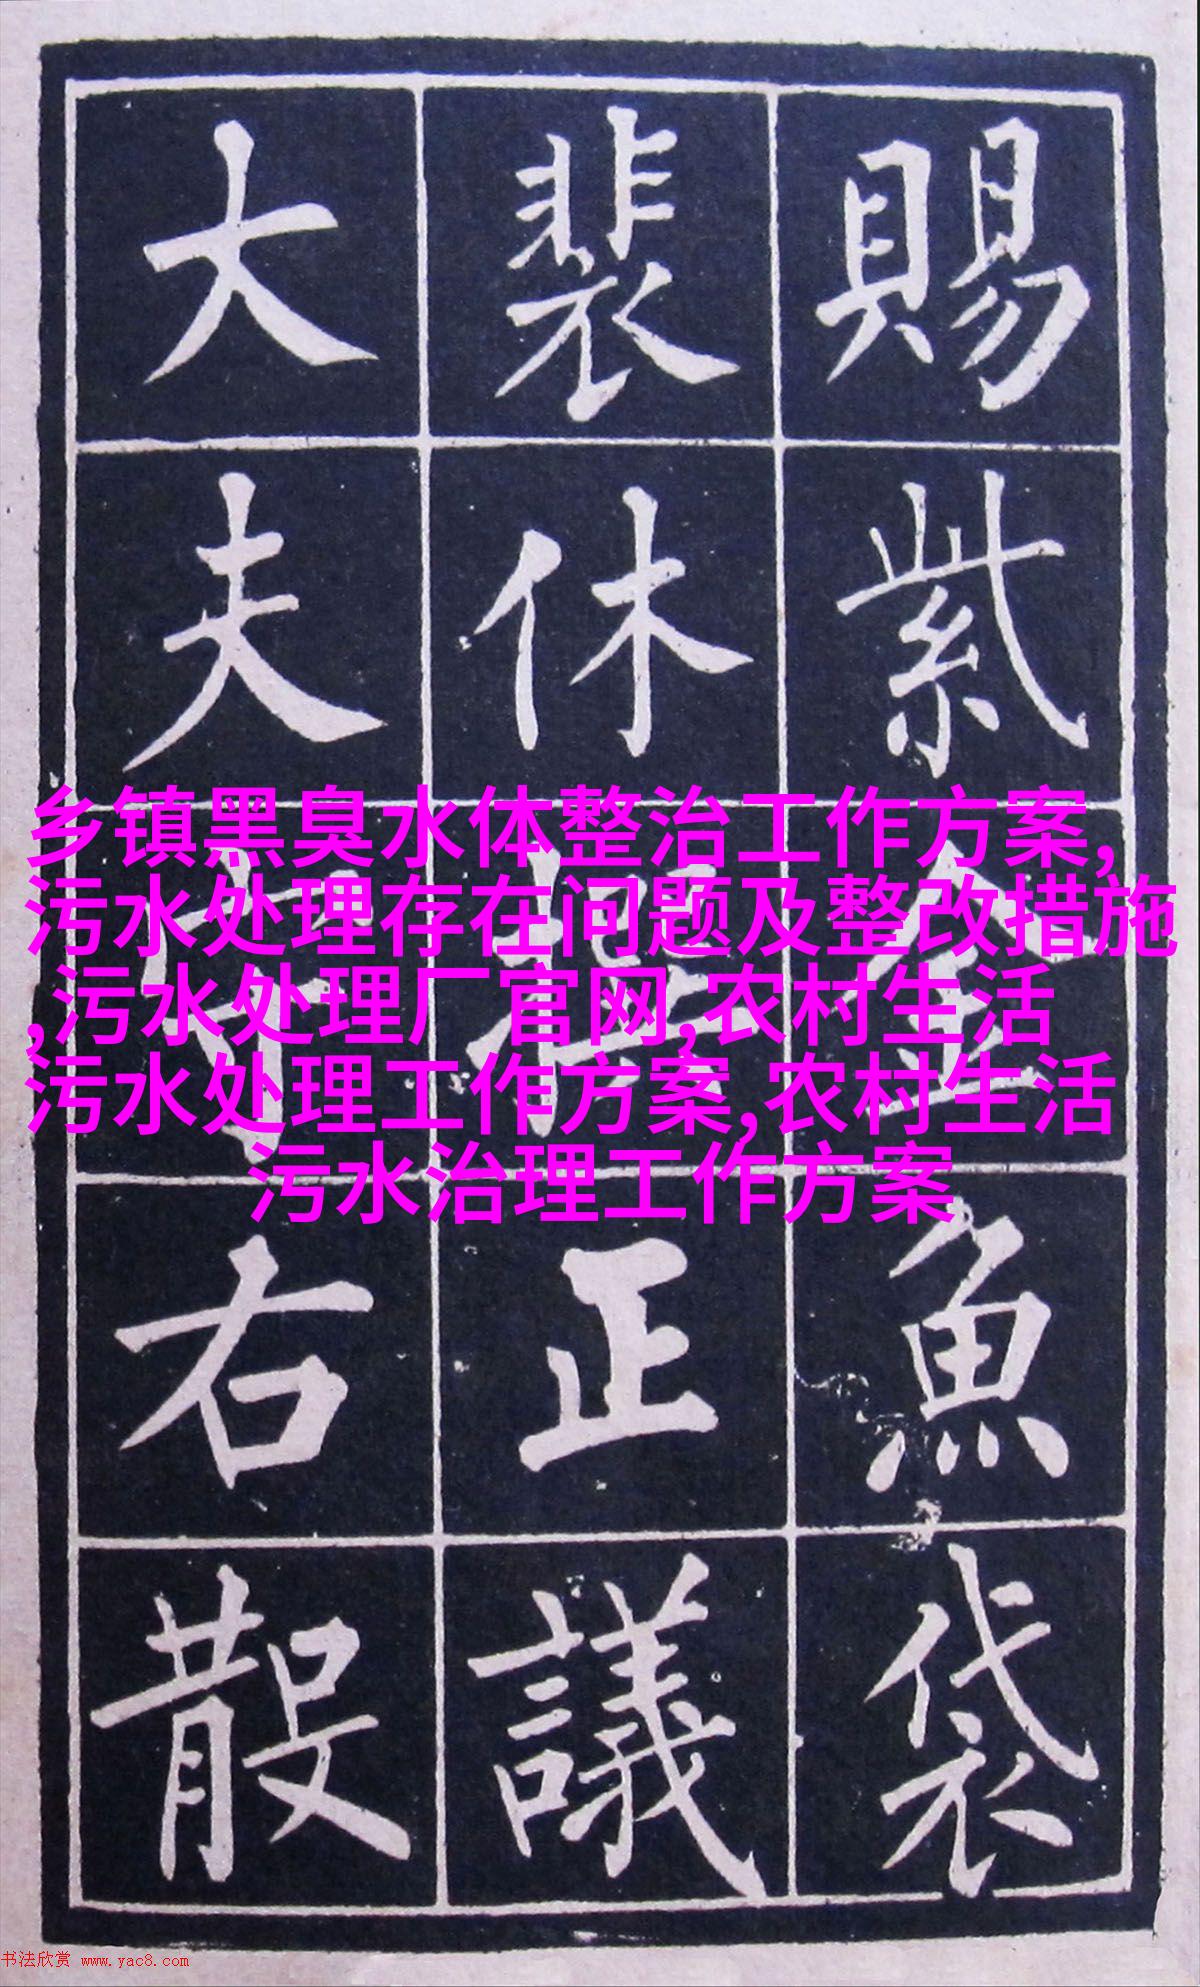 賜紫金魚袋
裴休撰正議
大夫守右散
乡镇黑臭水体整治工作方案,
污水处理存在问题及整改措施
,污水处理厂官网,农村生活
污水处理工作方案,农村生活
污水治理工作方案
书法欣赏 www.yac8.com